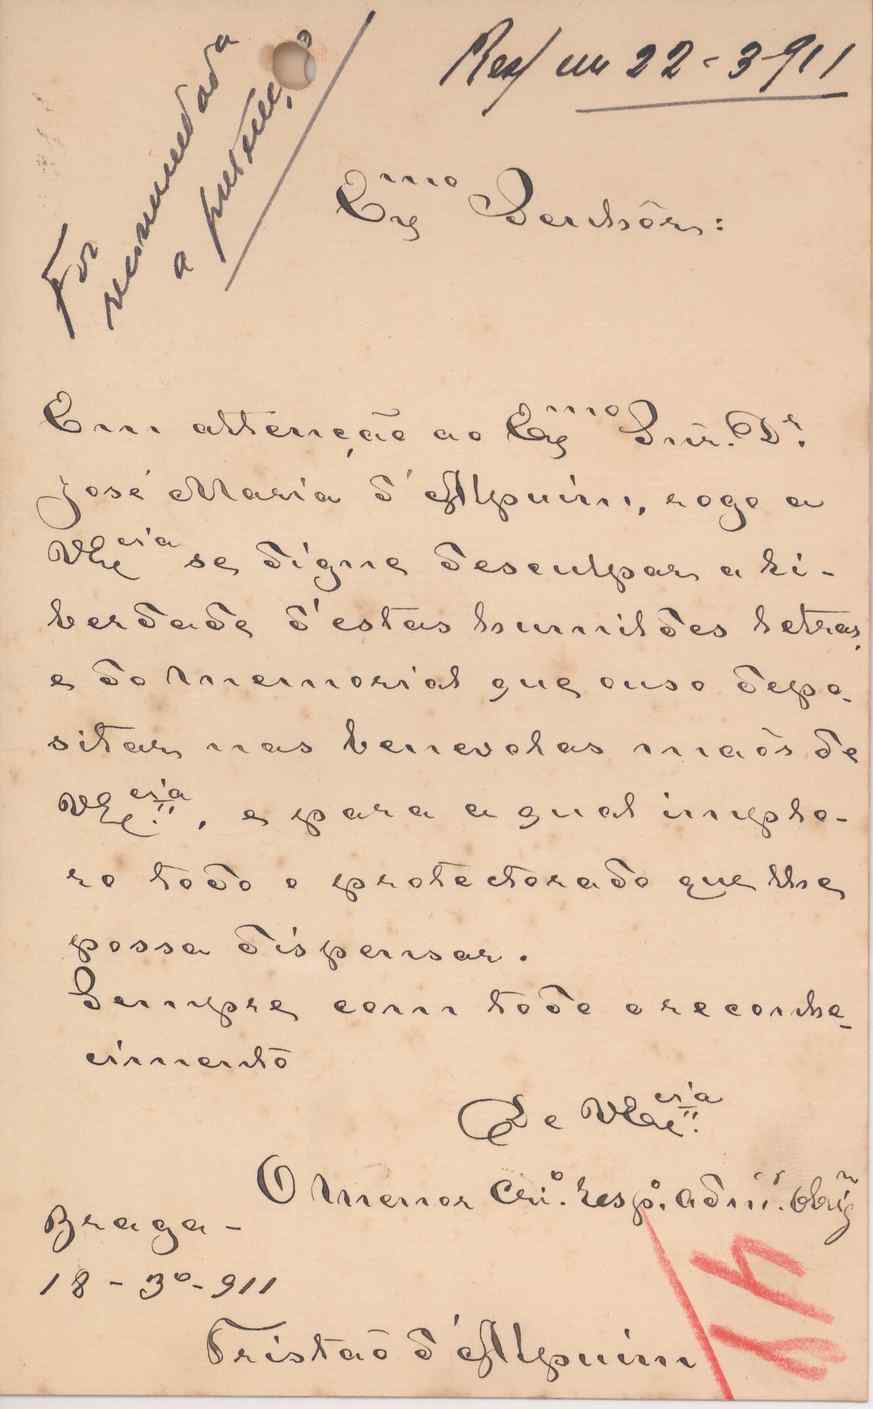 Foi
recommendada
a pretenção
Resp/ em 22-3-911
Exmo Senhôr:
Em attenção ao Exmo Snr. Dr.
José Maria d'Alpuim, rogo a
VExcia se digne desculpar a li-
berdade d'estas humildes letras,
e do memorial que ouso depo-
sitar nas benevolas maõs de
VExcia, e para a qual implo-
ro todo o protectorado que lhe
possa dispensar.
Sempre com todo o reconhe-
cimento
De VExcia
O menor Cri.º resp.º adm.or obrig
Braga-
18-3º-911
Tristaõ d'Alpuim